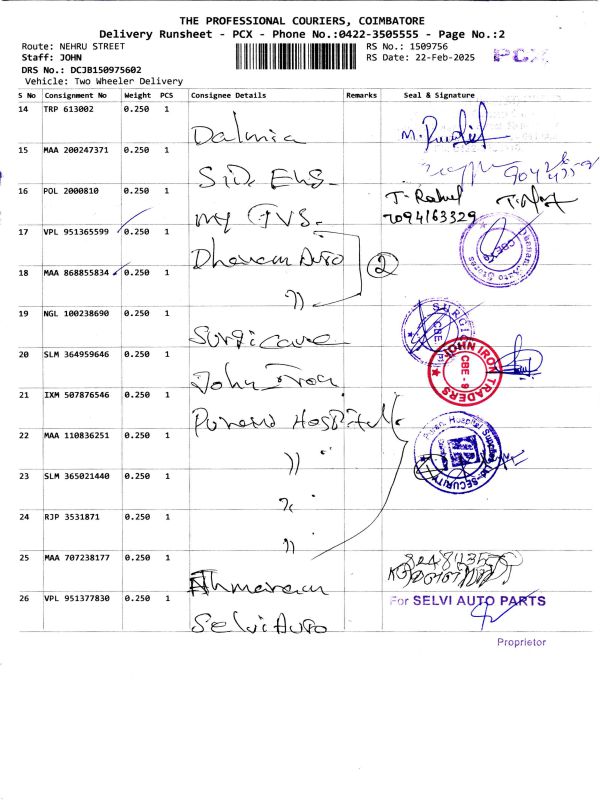 THE PROFESSIONAL COURIERS, COIMBATORE
Delivery Runsheet - PCX - Phone No.:0422-3505555 - Page No.:2
Route: NEHRU STREET
RS No.: 1509756
Staff: JOHN
RS Date: 22-Feb-2025
PCX
DRS No.: DCJB150975602
Vehicle: Two Wheeler Delivery
S No Consignment No Weight PCS Consignee Details Remarks Seal & Signature
14 TRP 613002 0.250 1 Dalmia
15 MAA 200247371 0.250 1
16 POL 2000810 0.250 1 my TVS. T. Rahul
7094163329
17 VPL 951365599 0.250 1 Dharan Auto
2
18 MAA 868855834 0.250 1 "
19 NGL 100238690 0.250 1 Surgicare
SURGIC
CBE
20 SLM 364959646 0.250 1 John Iron
JOHN IRON TRADERS
CBE - 9
21 IXM 507876546 0.250 1 Hospital
22 MAA 110836251 0.250 1 "
Hospital
SECURITY
23 SLM 365021440 0.250 1 "
24 RJP 3531871 0.250 1 "
25 MAA 707238177 0.250 1
26 VPL 951377830 0.250 1 Selvi Auto
For SELVI AUTO PARTS
Proprietor